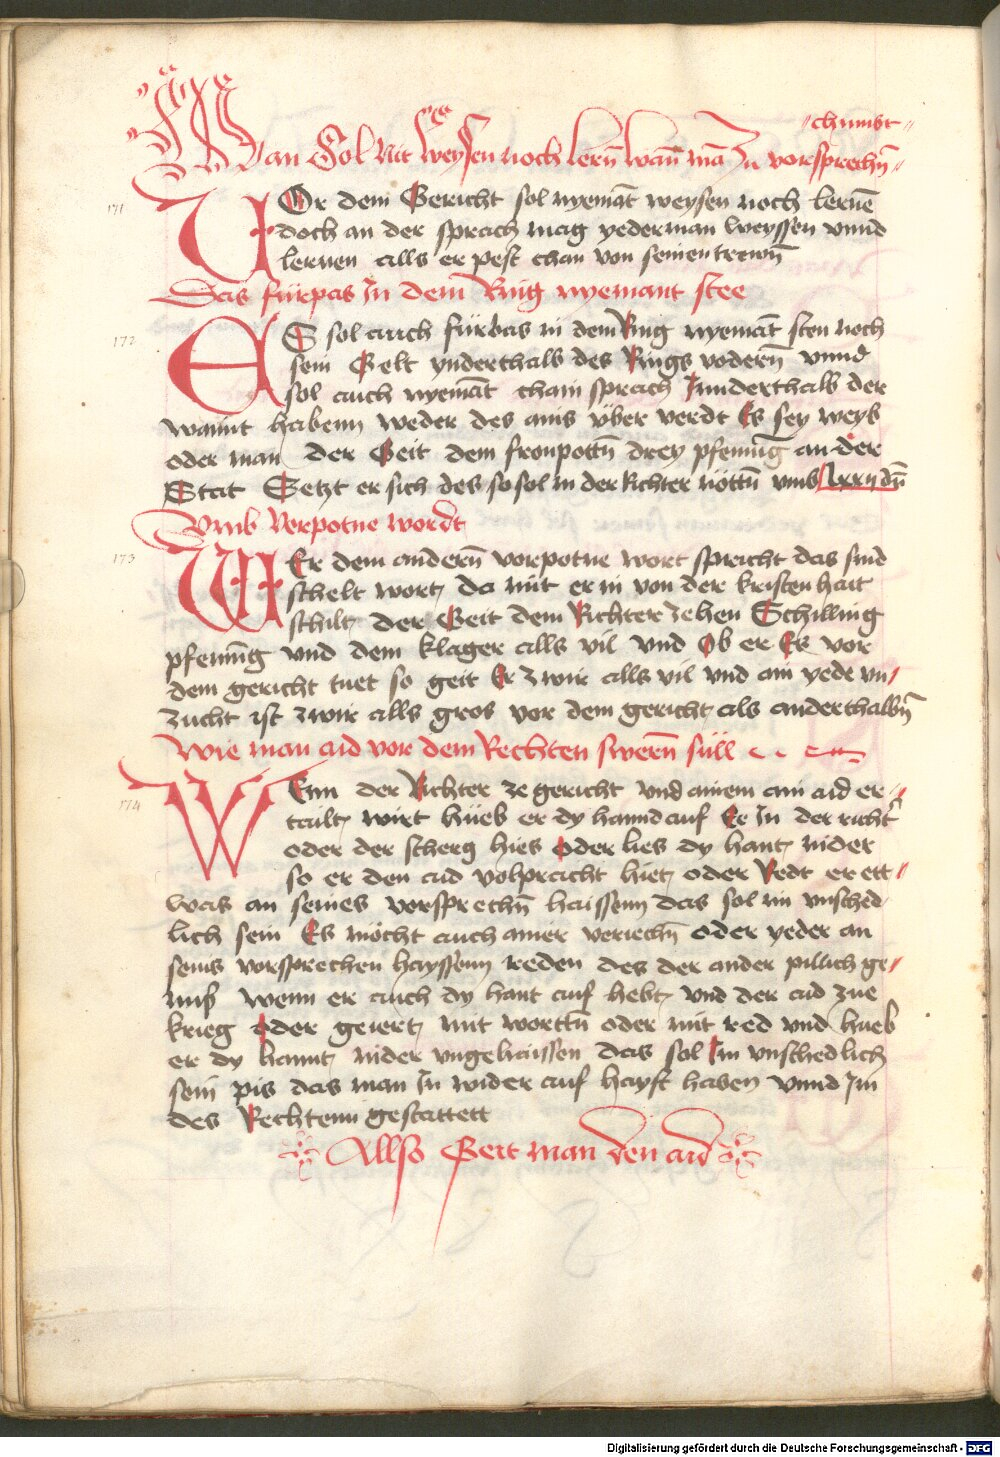 chumbt
Man Sol Nit weysen noch lern̄ wan̄ mā Zu vorsprechn̄
171
VOr dem Gericht sol nyemāt weysen noch lernē
doch an der sprach mag yederman weyssen vnnd
lernen alls er pest chan von seinen trewn̄
Das fürpas In dem Ring nyemant stee
172
ES sol auch fürbas in dem Ring nyemāt sten noch
sein Gelt ynderthalb des Rings vodern̄ vnnd
sol auch nyemāt chain sprach Innderthalb der
wannt habenn weder des ains vber verdt Es sey weyb
oder man der Geit dem fronpottn̄ drey pfennīg an der
Stat Setzt er sich des so sol in der Richter nöttn̄ vmb lxxij dn̄
Vmb Verpotne wordt
173
WEr dem anderen̄ vorpotne wort spricht das sind
schelt wort da mit er in von der kristenhait
schilt der Geit dem Richter zehen Schilling
pfennīg vnd dem klager alls vil vnd Ob er Es vor
dem gericht tuet so geit Er zwir alls vil vnd ain yede vn
zucht ist zwir alls gros vor dem gericht als anderthalbn̄
Wie man aid vor dem Rechten swern̄ süll
174
WEnn der Richter ze gericht vnd ainem ain aid er
tailt wirt hüeb er dy hannd auf Ee In der richtr̄
oder der scherg hies oder lies dy hant nider
so er den aid volpracht hiet oder Redt er ett
was an seines vorsprechn̄ haissenn das sol im vnsched
lich sein Es möcht auch ainer veriechn̄ oder yeder an
seins vorsprechen hayssenn reden des der ander pillich ge
nuß wenn er auch dy hant auf hebt vnd der aid zue
krieg oder geiert mit worttn̄ oder mit red vnd hueb
er dy hannt nider vngehaissen das sol Im vnschedlich
sein pis das man In wider auf hayst haben vnnd Im
des Rechtenn gestattett
Allso Geit man den aid
Digitalisierung gefördert durch die Deutsche Forschungsgemeinschaft - DFG